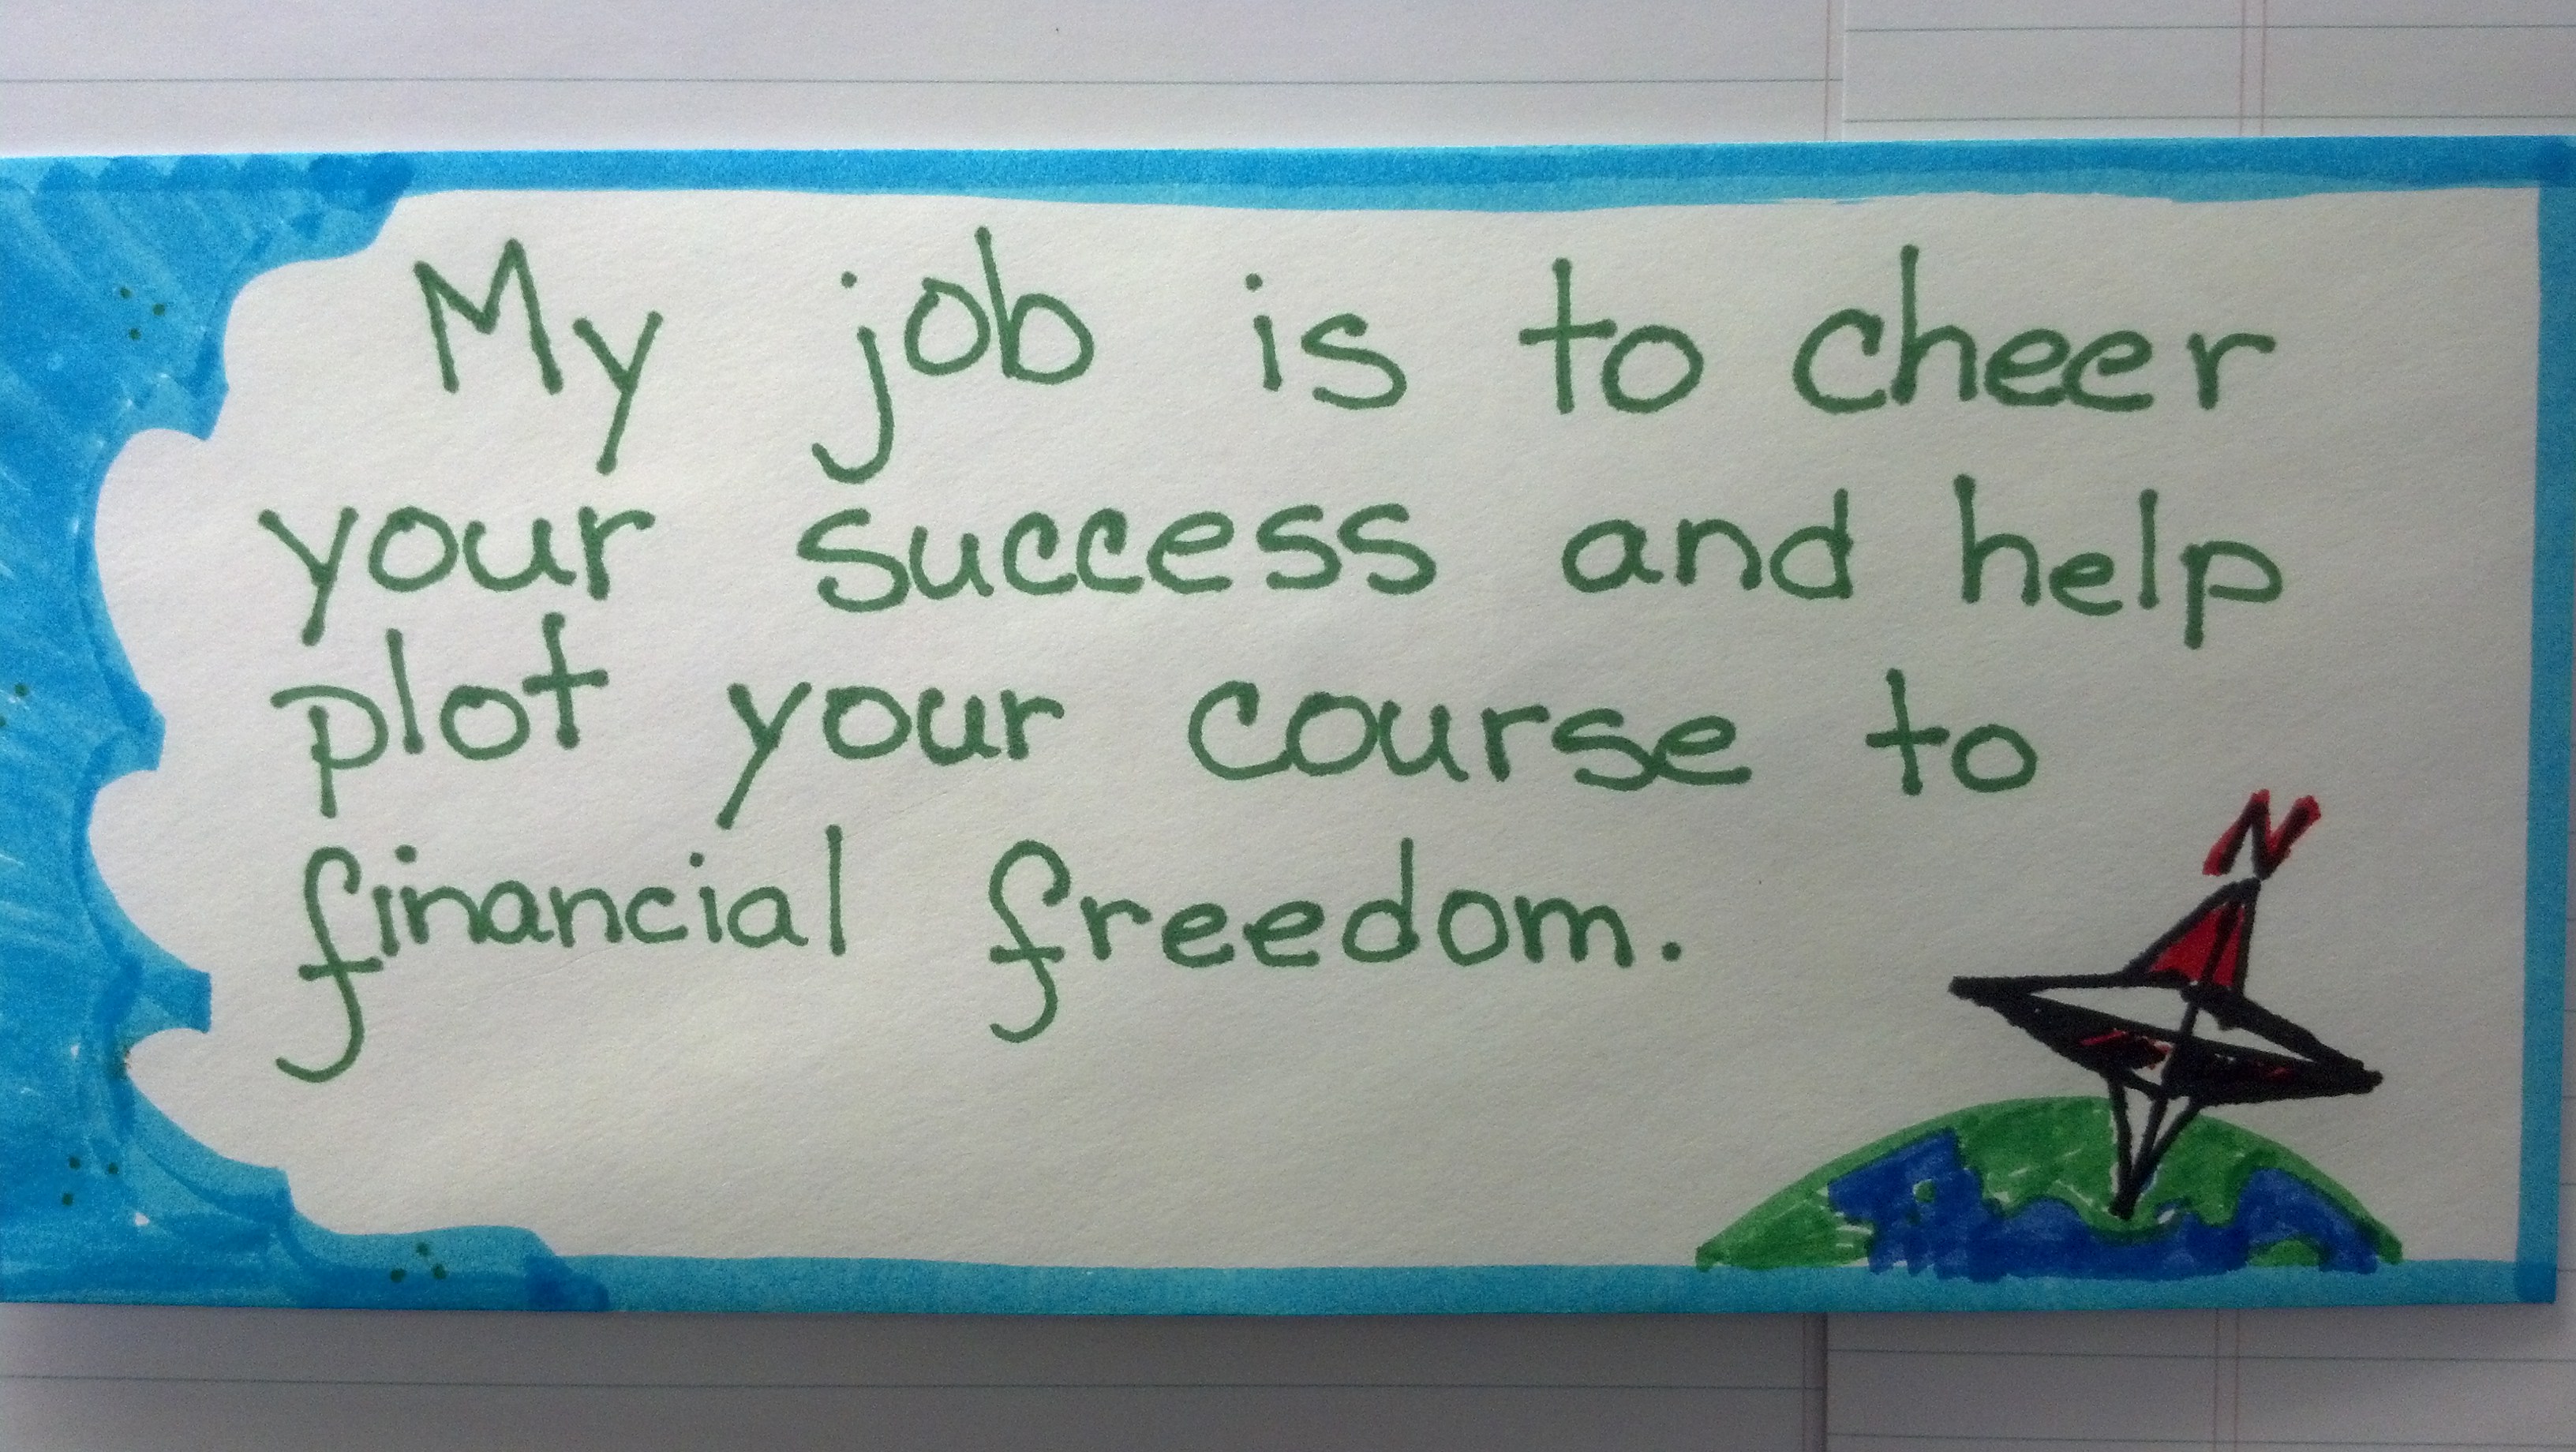 My job is to cheer
your success and help
plot your course to
financial freedom.
N